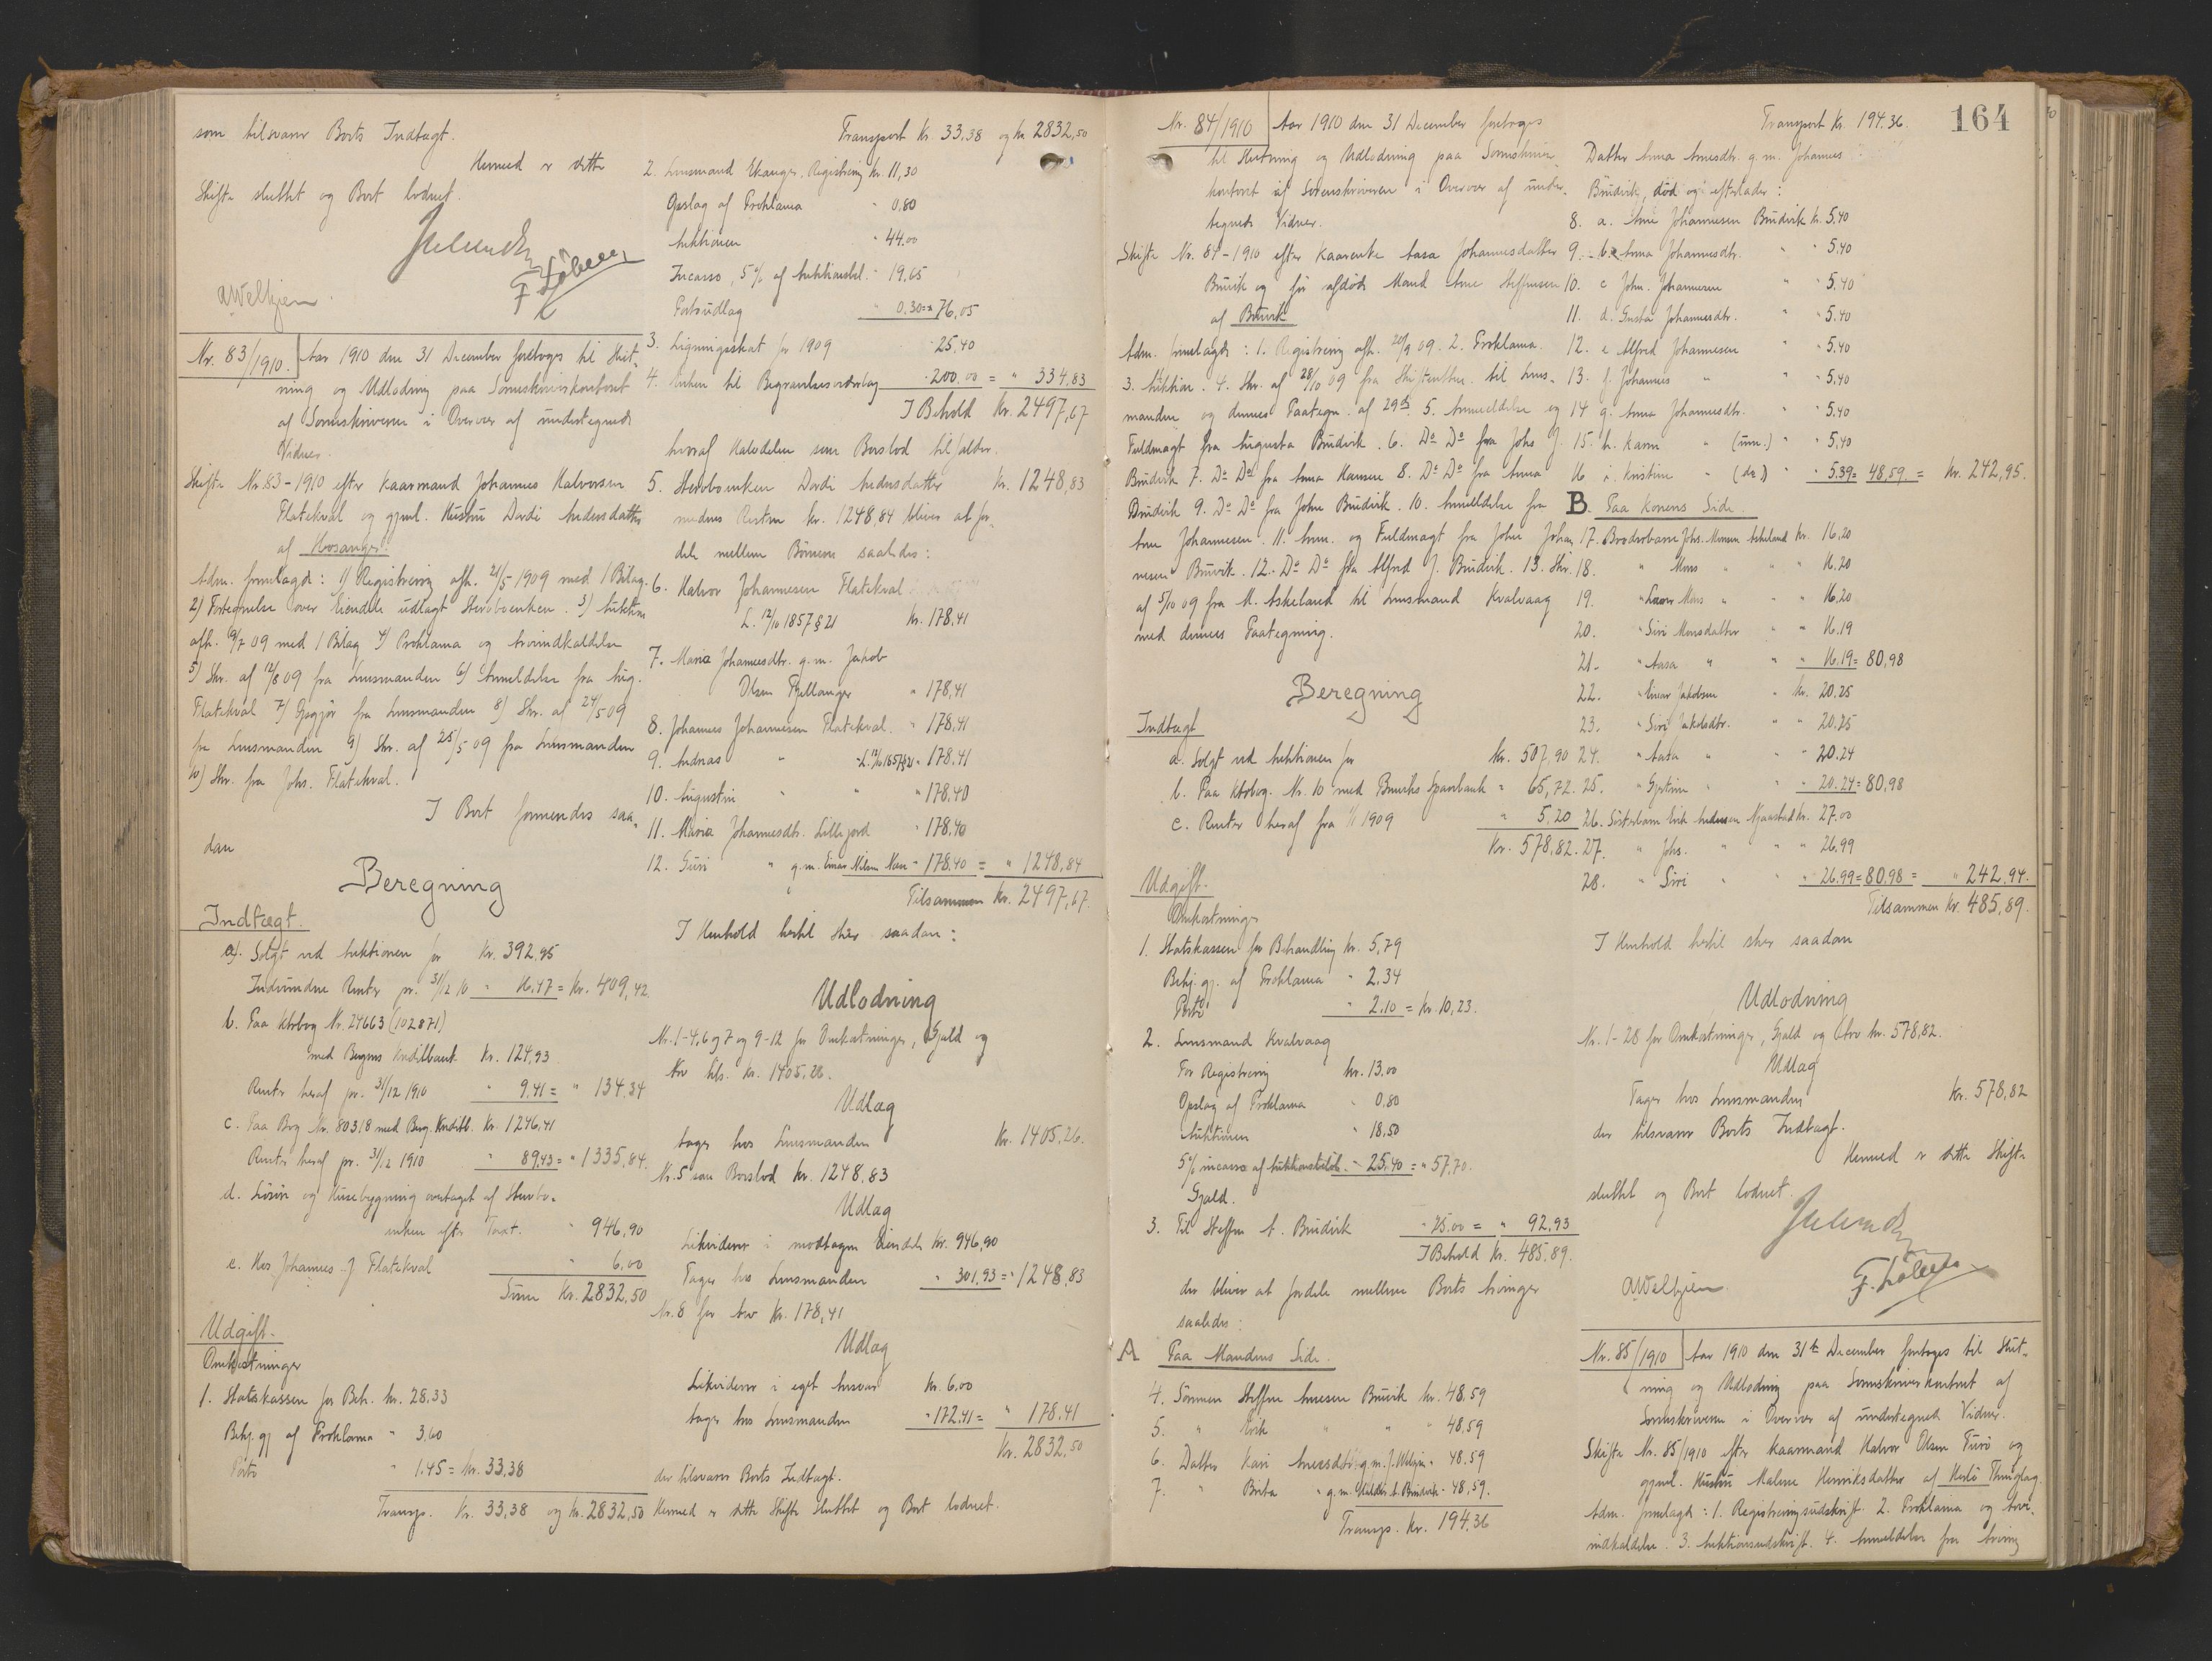 som tilsvarer Boets Indtægt.
Hermed er dette
Skifte sluttet og Boet loddet.
AWelhjem
F. Løberg
Nr. 83/1910. Aar 1910 den 31 December foretoges til Slut-
ning og Udlodning paa Sorenskriverkontoret
af Sorenskriveren i Overvær af undertegnede
Vidner.
Skifte Nr. 83-1910 efter Kaarmand Johannes Halvorsen
Flatekval og gjenl. Hustru Dordi Andersdatter
af Hosanger.
Adm. fremlagde: 1) Registrering afh. 21/5 1909 med 1 Bilag.
2) Fortegnelse over Eiendele udlagt Stervboenken. 3) Auktion
afh. 9/7 09 med 1 Bilag 4) Proklama og Arveindkaldelse
5) Skr. af 12/8 09 fra Lensmanden 6) Anmeldelse fra Aug.
Flatekval 7) Opgjør fra Lensmanden 8) Skr. af 24/5 09
fra Lensmanden 9) Skr. af 25/5 09 fra Lensmanden
10) Skr. fra Johs. Flatekval.
I Boet formeredes saa-
dan
Beregning
Indtægt.
a). Solgt ved Auktionen for Kr. 392,95
Indvundne Renter pr. 31/12 10 " 16.47 = Kr. 409,42
b. Paa Ktrbog Nr. 24663 (102871)
med Bergens Kreditbank Kr. 124,93
Renter heraf pr. 31/12 1910 " 9.41 = " 134.34
c. Paa Bog Nr. 80318 med Berg. Kreditb. Kr. 1246,41
Renter heraf pr. 31/12 1910 " 89.43 = " 1335,84.
d. Løsøre og Husebygning overtaget af Stervbo-
enken efter Taxt. " 946,90
e. Hos Johannes J. Flatekval " 6,00
Sum Kr. 2832,50
Udgift.
Omkostninger
1. Statskassen for Beh. Kr. 28.33
Bekj.gj. af Proklama " 3,60
Porto " 1.45 = Kr. 33,38
Transp. Kr. 33,38 og Kr. 2832,50
Transport Kr. 33,38 og Kr. 2832,50
2. Lensmand Ekanger, Registrering Kr. 11,30
Opslag af Proklama " 0,80
Auktionen " 44.00
Incasso, 5% af Auktionsbel. " 19,65
Portoudlag " 0.30 = " 76,05
3. Ligningsskat for 1909 " 25,40
4. Enken til Begravelsesvederlag " 200,00 = " 334,83
I Behold Kr. 2497,67
hvoraf Halvdelen som Boeslod tilfalder.
5. Stervboenken Dordi Andersdatter Kr. 1248,83
medens Resten Kr. 1248,84 bliver at for-
dele mellem Børnene saaledes:
6. Halvor Johannesen Flatekval
L. 12/10 1857 § 21 Kr. 178,41
7. Maria Johannesdtr. g.m. Jakob
Olsen Fjellanger " 178,41
8. Johannes Johannesen Flatekval. " 178,41
9. Andreas " L. 12/10 1857 § 21 " 178,41
10. Augustin " " " 178,40
11. Maria Johannesdtr. Lillejord " 178,40
12. Guri " g.m. Einar Nilsen " 178.40 = " 1248,84
Tilsammen Kr. 2497,67.
I Henhold hertil skeer saadan:
Udlodning
Nr. 1-4, 6 og 7 og 9-12 for Omkostninger, Gjæld og
Arv tils. Kr. 1405,26.
Udlæg
tages hos Lensmanden Kr. 1405,26.
Nr. 5 som Boeslod Kr. 1248,83
Udlæg
Likviderer i modtagen Eiendele Kr. 946,90
Tages hos Lensmanden " 301,93 = " 1248,83
Nr. 8 for Arv Kr. 178,41
Udlæg
Likviderer i eget Ansvar Kr. 6,00
tages hos Lensmanden " 172,41 = " 178,41
Kr. 2832,50
der tilsvarer Boets Indtægt.
Hermed er dette Skifte sluttet og Boet loddet.
164
Nr. 84/1910 Aar 1910 den 31 December foretoges
til Slutning og Udlodning paa Sorenskriver-
kontoret af Sorenskriveren i Overvær af under-
tegnede Vidner.
Skifte Nr. 84-1910 efter Kaarenke Aasa Johannesdatter
Bruvik og før afdøde Mand Arne Steffensen
af Bruvik
Adm. fremlagde: 1. Registrering afh. 20/9 09. 2. Proklama.
3. Auktion. 4. Skr. af 28/10 09 fra Skifteretten til Lens-
manden og dennes Paategn. af 29ds. 5. Anmeldelse og
Fuldmagt fra Augusta Brudvik. 6. Do Do fra Johs J.
Brudvik 7. Do Do fra Anna Hansen 8. Do Do fra Anna
Brudvik 9. Do Do fra John Brudvik. 10. Anmeldelse fra
Arne Johannesen. 11. Anm. og Fuldmagt fra John Johan-
nesen Bruvik. 12. Do Do fra Alfred J. Brudvik. 13. Skr.
af 5/10 09 fra M. Askeland til Lensmand Kvalvaag
med dennes Paategning.
Beregning
Indtægt
a. Solgt ved Auktionen for Kr. 507,90
b. Paa Ktrbog. Nr. 10 med Bruviks Sparebank " 65,72.
c. Renter heraf fra 1/1 1909 " 5,20
Kr. 578,82.
Udgift.
Omkostninger
1. Statskassen for Behandling Kr. 5,79
Bekj.gj. af Proklama " 2,34
Porto " 2.10 = Kr. 10,23.
2. Lensmand Kvalvaag
For Registrering Kr. 13,00
Opslag af Proklama " 0,80
Auktionen " 18,50
5% incasso af Auktionsbeløb. " 25,40 = " 57,70.
Gjæld.
3. Til Steffen A. Brudvik " 25.00 = " 92,93
I Behold Kr. 485,89.
der bliver at fordele mellem Boets Arvinger
saaledes:
A Paa Mandens Side.
4. Sønnen Steffen Arnesen Bruvik Kr. 48.59
5. " Erik " " " 48,59
6. Datter Kari Arnesdtr. g.m. J. Welhjem " 48.59
7. " Brita " g.m. Brudvik " 48,59.
Transp. Kr. 194,36
Transport Kr. 194.36.
Datter Anna Arnesdtr. g.m. Johannes
Brudvik, død og efterlader:
8. a. Arne Johannesen Brudvik Kr. 5,40
9. b. Anna Johannesdtr. " " 5,40
10. c John. Johannesen " " 5,40
11. d. Gusta Johannesdtr. " " 5,40
12. e Alfred Johannesen " " 5,40
13. f. Johannes " " " 5,40
14 g. Anna Johannesdtr. " " 5,40
15. h. Karen " (um.) " " 5,40
16 i. Kristine " (do.) " 5.39 = 48,59 = Kr. 242,95.
B. Paa Konens Side.
17. Broderbarn Johs. Monsen Askeland Kr. 16,20
18. " Mons " " " 16.20
19. " Mons " " " 16.20
20. " Siri Monsdatter " " 16.19
21. " Aasa " " " 16.19 = 80,98
22. " Einar Jakobsen " Kr. 20.25
23. " Siri Jakobsdtr. " " 20.25
24. " Aasa " " " 20.24
25. " Gjertine " " " 20.24 = 80,98
26. Søsterbarn Erik Andersen Mjaastad Kr. 27.00
27. " Johs. " " " 26.99
28. " Siri " " 26.99 = 80.98 = " 242.94.
Tilsammen Kr. 485,89.
I Henhold hertil sker saadan
Udlodning
Nr. 1-28 for Omkostninger, Gjæld og Arv Kr. 578,82.
Udlæg
Tages hos Lensmanden Kr. 578,82
der tilsvarer Boets Indtægt.
Hermed er dette Skifte
sluttet og Boet loddet.
AWelhjem.
F. Løberg
Nr. 85/1910 Aar 1910 den 31te December foretoges til Slut-
ning og Udlodning paa Sorenskriverkontoret af
Sorenskriveren i Overvær af undertegnede Vidner.
Skifte Nr. 85/1910 efter Kaarmand Halvor Olsen Turø og
gjenl. Hustru Malene Henriksdatter af Herlø Thinglag.
Adm. fremlagde: 1. Registreringsudskrift. 2. Proklama og Arve-
indkaldelse. 3. Auktionsudskrift. 4. Anmeldelse fra Arving